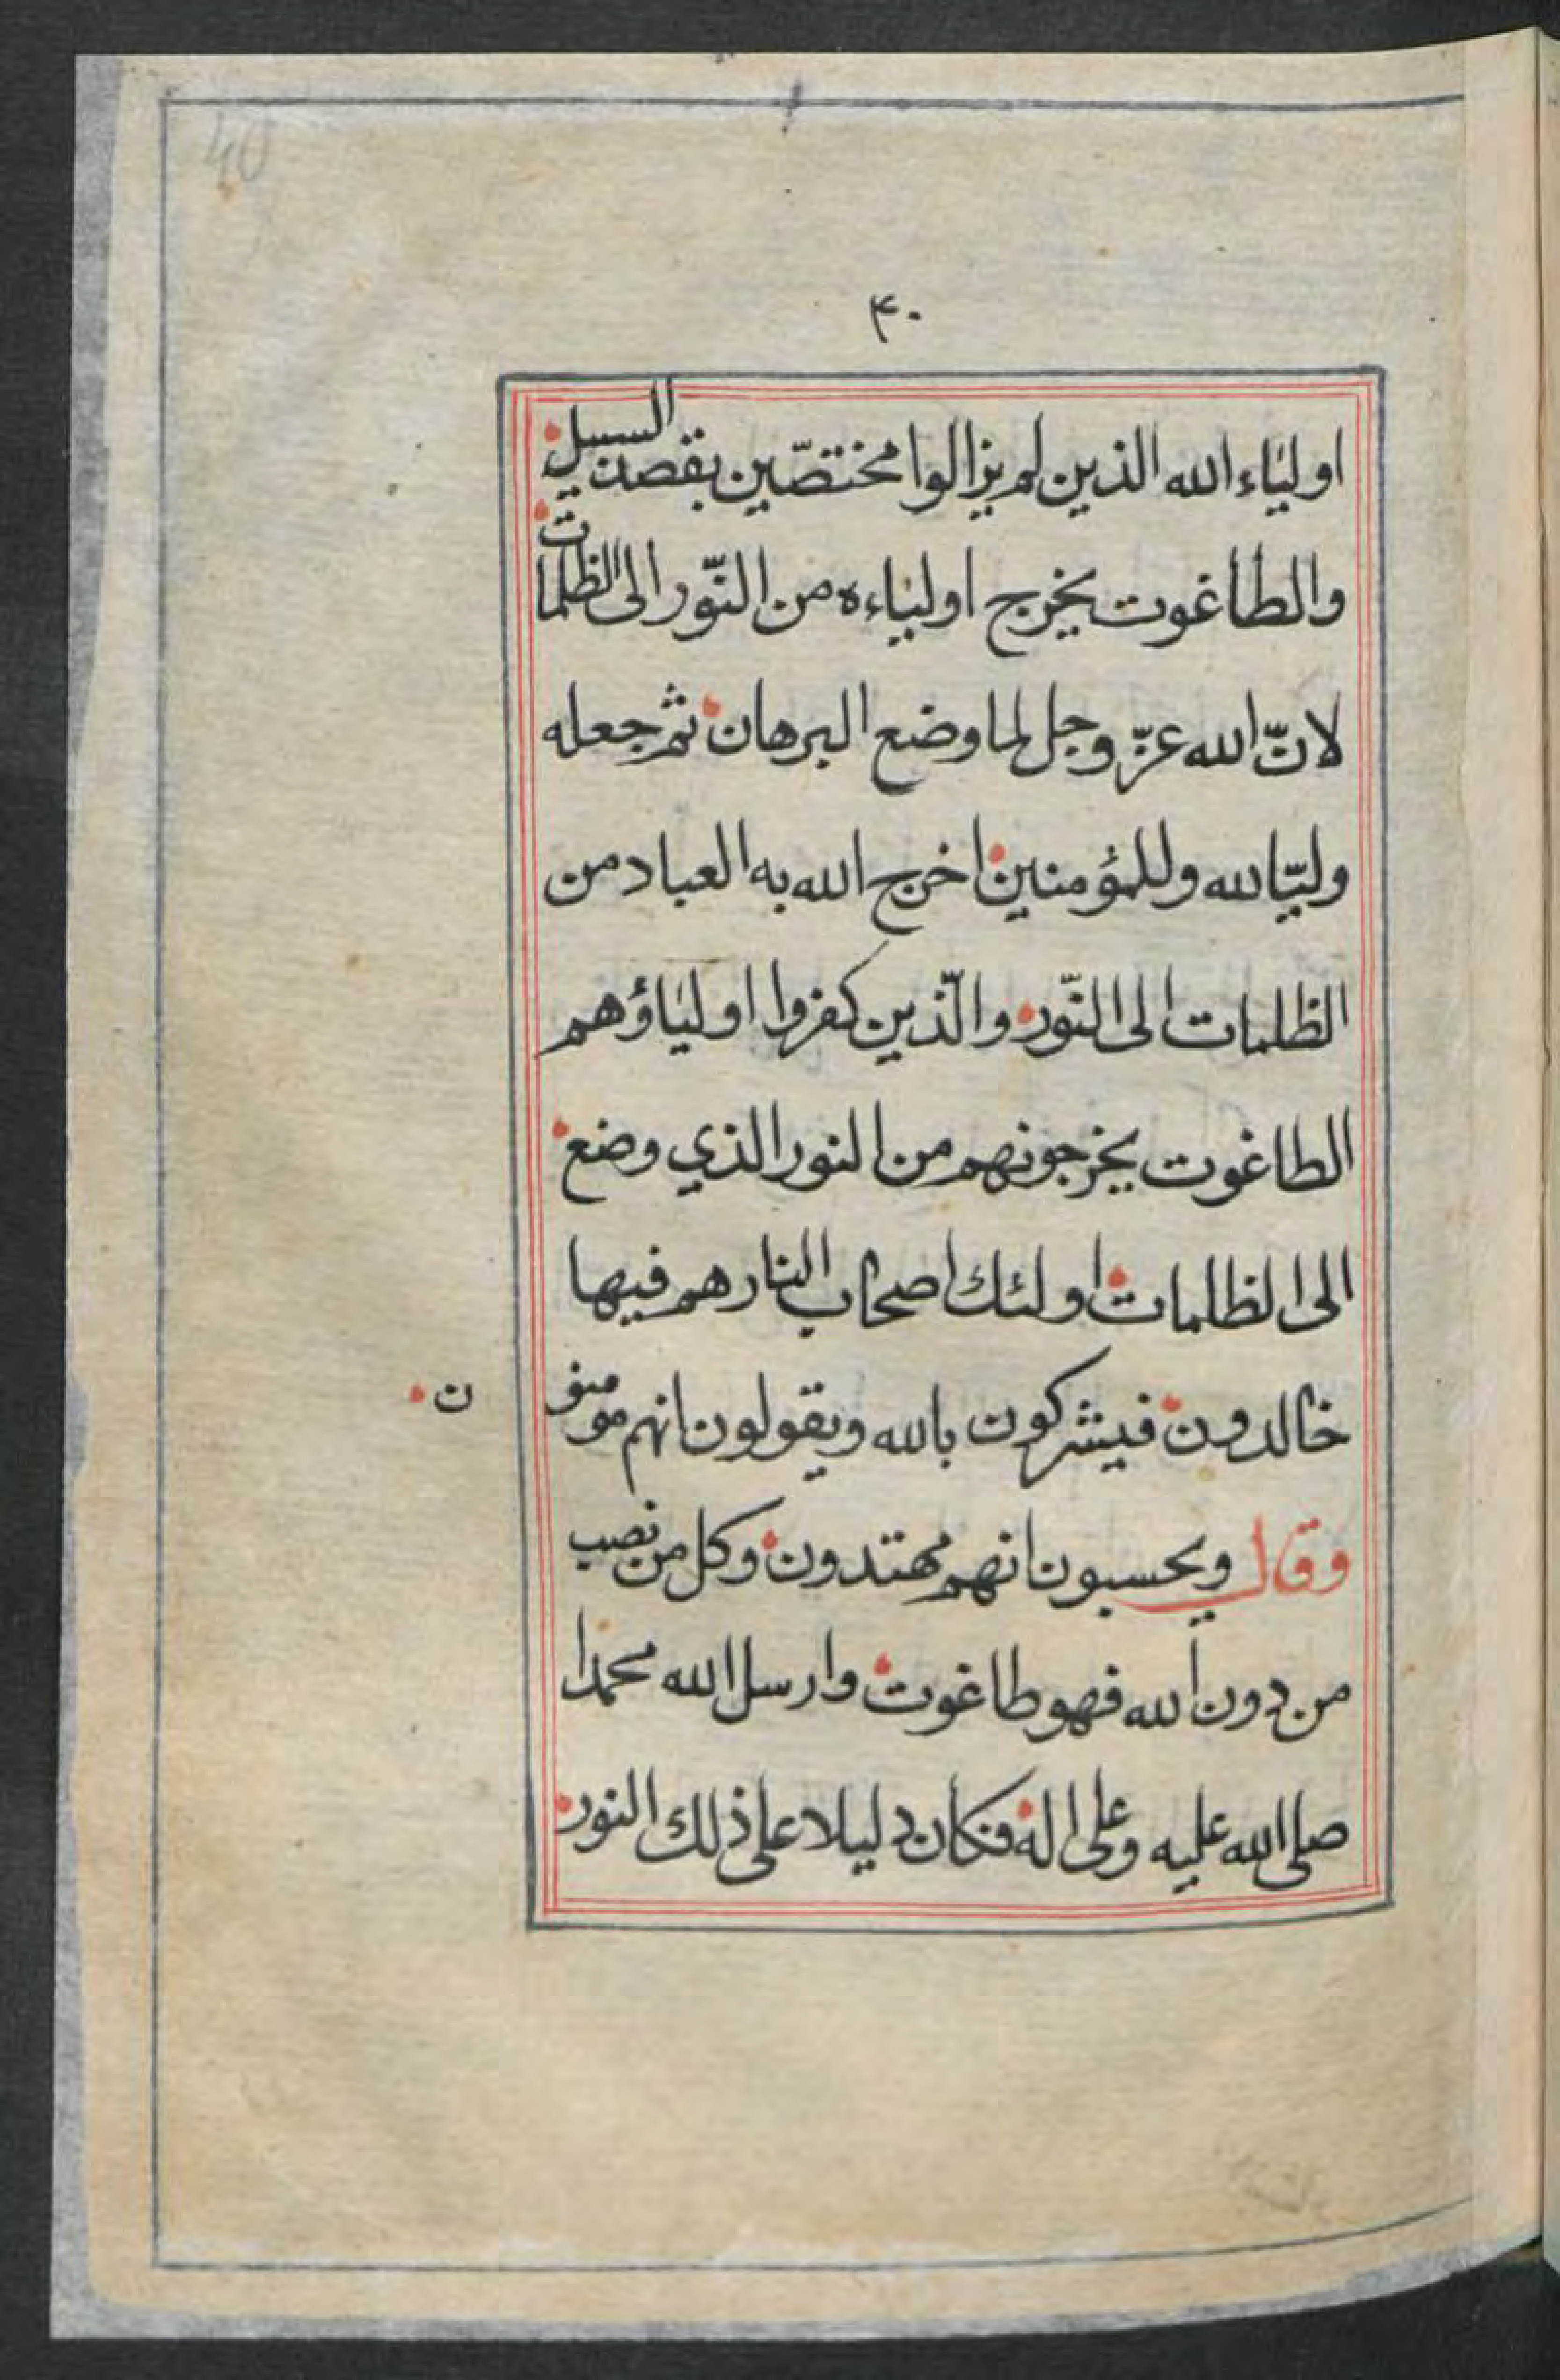 40
۴۰
اولياء الله الذين لم يزالوا مختصّين بقصد السبيل
والطاغوت يخرج اولياءه من النّور الى الظلمات
لانّ الله عزّ وجل لما وضع البرهان ثم جعله
وليّا لله وللمؤمنين اخرج الله به العباد من
الظلمات الى النّور والّذين كفروا اولياؤهم
الطاغوت يخرجونهم من النور الذي وضع
الى الظلمات اولئك اصحاب النار هم فيها
خالدون فيشركون بالله ويقولون انهم مومنون
وقال ويحسبون انهم مهتدون وكل من نصب
من دون الله فهو طاغوت وارسل الله محمدا
صلى الله عليه وعلى اله فكان دليلا على ذلك النور